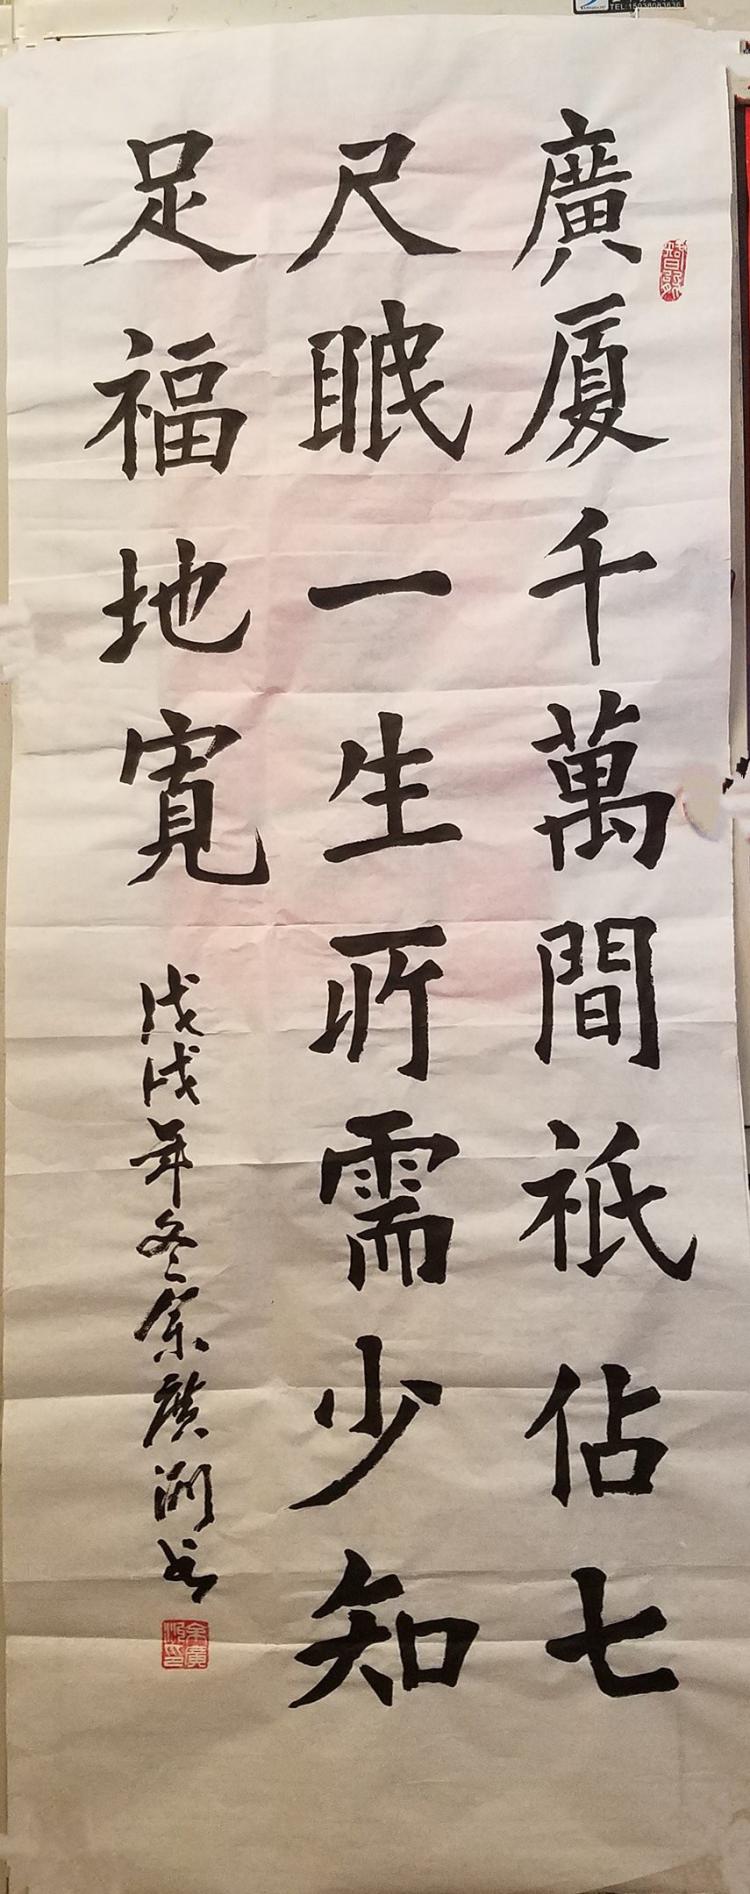 廣厦千萬間祇佔七
尺眠一生所需少知
足福地寬
戊戌年冬余廣洲书
余廣洲印
TEL:15036083636